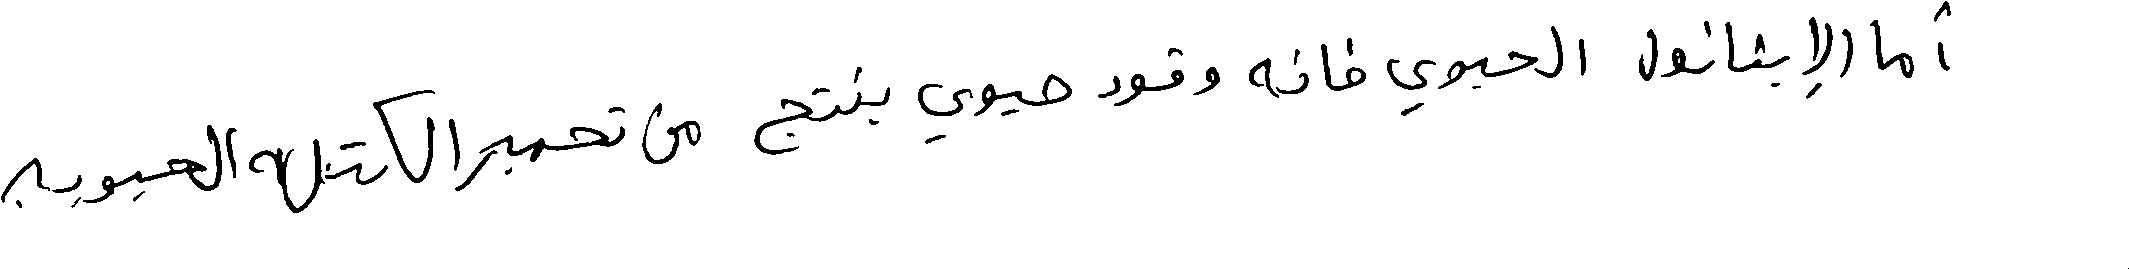 أما الإيثانول الحيوي فانه وقود حيوي ينتج من تخمير الكتله الحيويه.